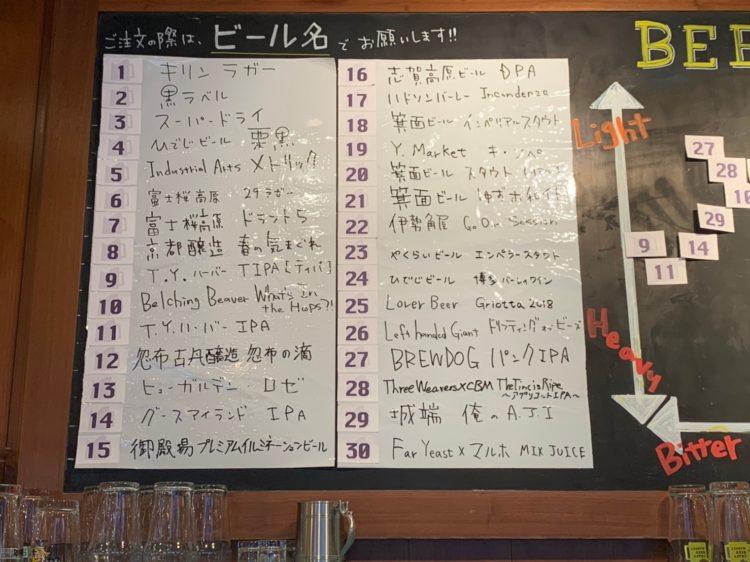 ご注文の際は、ビール名でお願いします!!
BEE
1 キリン ラガー
2 黒ラベル
3 スーパードライ
4 ひでじビール 栗黒
5 Industrial Arts メトリック
6 富士桜高原 29ラガー
7 富士桜高原
8 京都醸造 春の気まぐれ
9 T.Y.ハーバー TIPA [ティパ]
10 Belching Beaver What's in the Hops?!
11 T.Y.ハーバー IPA
12 忽布古丹醸造 忽布の滴
13 ヒューガルデン・ロゼ
14 グースアイランド IPA
15 御殿場プレミアムイルミネーションビール
16 志賀高原ビール DPA
17 ハドソンバーレー Incandenza
18 箕面ビール インペリアルスタウト
19 Y.Market
20 箕面ビール スタウト
21 箕面ビール
22 伊勢角屋 Go On Session
23 やくらいビール エンペラースタウト
24 ひでじビール 博多バーレイワイン
25 Lover Beer Griotta 2018
26 Left handed Giant
27 BREWDOG パンクIPA
28 Three Weavers×CBM The Tinc is Ripe
～アプリコットIPA～
29 城端 俺のA.J.I
30 Far Yeast × マルホ MIX JUICE
Light
27
28
10
29
9
14
11
Heavy
Bitter